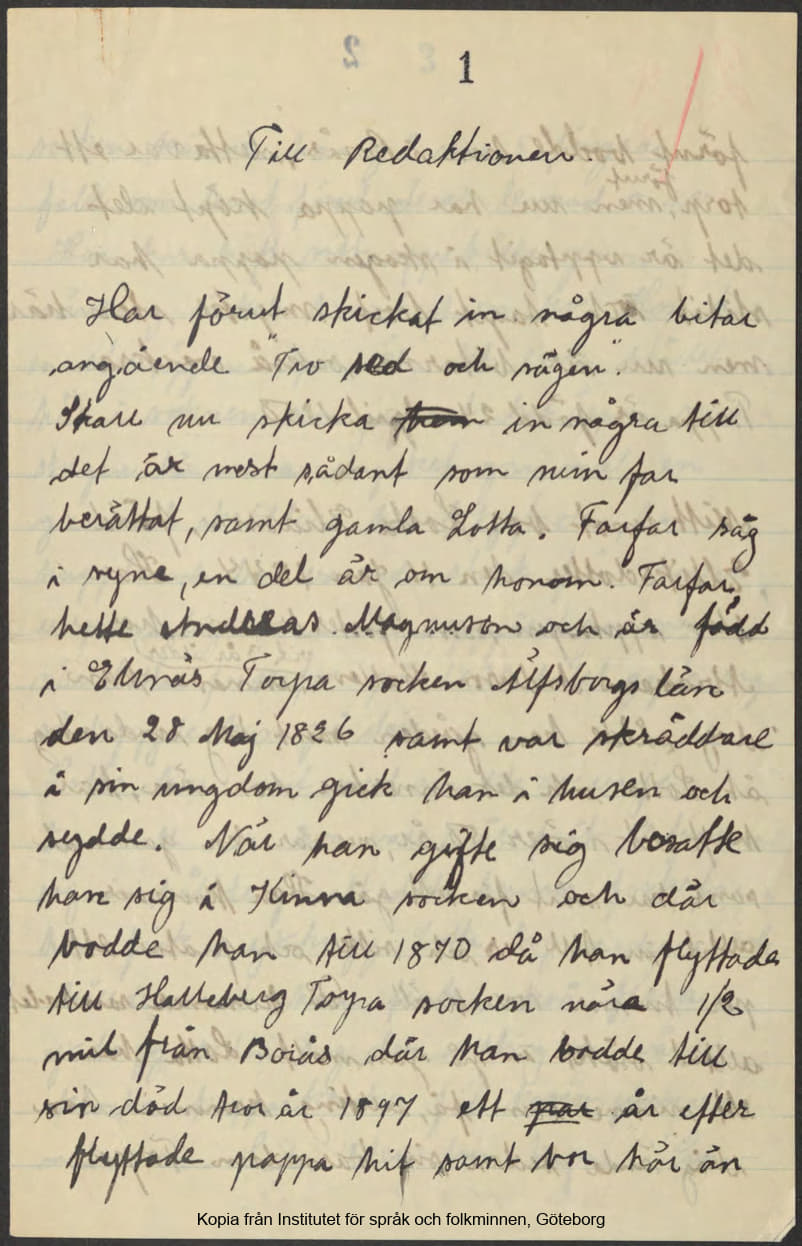 1
Till Redaktionen.
Har förut skickat in några bitar
angående "Tro sed och sägen".
Skall nu skicka in några till
det är mest sådant som min far
berättat, samt gamla Lotta. Farfar såg
i syne, en del är om honom. Farfar
hette Andreas Magnuson och är född
i Elsnäs Torpa socken Älfsborgs län
den 28 Maj 1826 samt var skräddare
i sin ungdom gick han i husen och
sydde. När han gifte sig bosatte
han sig i Kinna socken och där
bodde han till 1870 då han flyttade
till Halleberg Torpa socken nära 1/2
mil från Borås där han bodde till
sin död tror år 1897 ett par år efter
flyttade pappa hit samt bor här än
Kopia från Institutet för språk och folkminnen, Göteborg